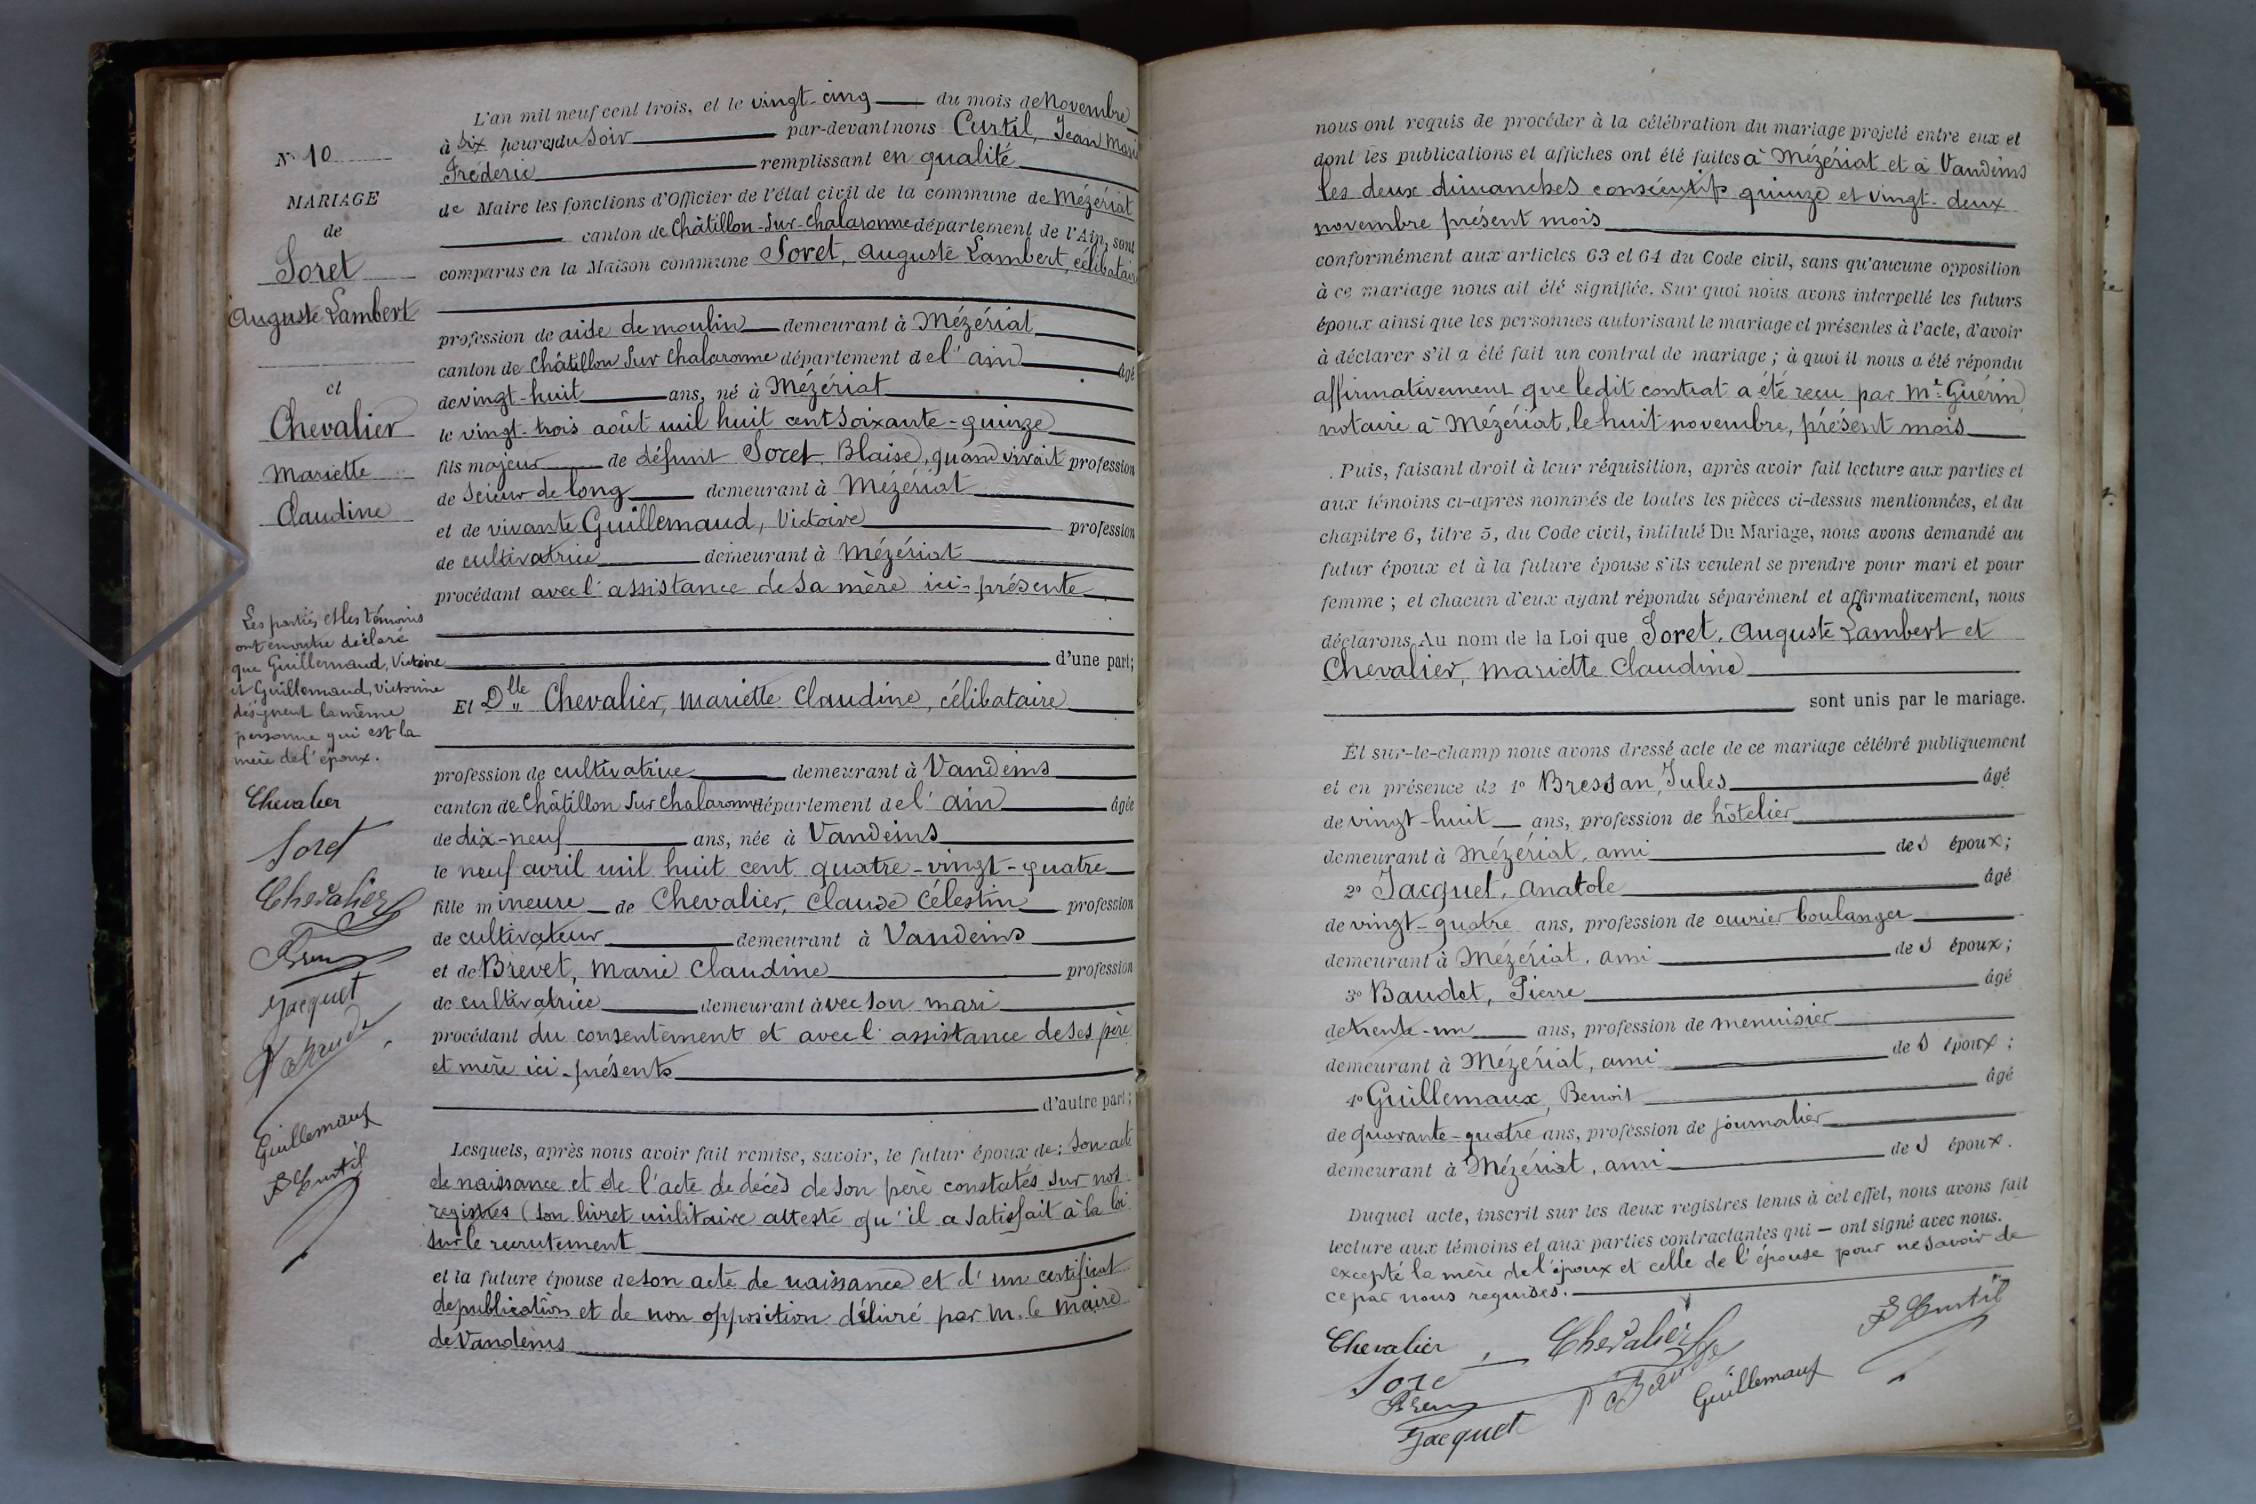 N° 10
MARIAGE
de
Soret
Auguste Lambert
et
Chevalier
Mariette
Claudine
Les parties et les témoins
ont en outre déclaré
que Guillemaud, Victoire
et Guillemaud, Victorine
désignent la même
personne qui est la
mère de l'époux.
Chevalier
Soret
Chevalier
Jacquet
Guillemaux
Curtil
L'an mil neuf cent trois, et le vingt-cinq du mois de Novembre
à six heures du soir par-devant nous Curtil, Jean Marie
Fréderic remplissant en qualité
de Maire les fonctions d'Officier de l'état civil de la commune de Mézériat
canton de Châtillon-sur-Chalaronne département de l'Ain, sont
comparus en la Maison commune Soret, Auguste Lambert, célibataire
profession de aide de moulin demeurant à Mézériat
canton de Châtillon sur Chalaronne département de l'ain âgé
de vingt-huit ans, né à Mézériat
le vingt-trois août mil huit cent soixante-quinze
fils majeur de défunt Soret, Blaise, quand vivait profession
de scieur de long demeurant à Mézériat
et de vivante Guillemaud, Victoire profession
de cultivatrice demeurant à Mézériat
procédant avec l'assistance de sa mère ici-présente
d'une part;
Et Dlle Chevalier, Mariette Claudine, célibataire
profession de cultivatrice demeurant à Vandeins
canton de Châtillon sur Chalaronne département de l'ain âgée
de dix-neuf ans, née à Vandeins
le neuf avril mil huit cent quatre-vingt-quatre
fille mineure de Chevalier, Claude Célestin profession
de cultivateur demeurant à Vandeins
et de Brevet, Marie Claudine profession
de cultivatrice demeurant avec son mari
procédant du consentement et avec l'assistance de ses père
et mère ici-présents
d'autre part;
Lesquels, après nous avoir fait remise, savoir, le futur époux de: son acte
de naissance et de l'acte de décès de son père constatés sur nos
registres (son livret militaire atteste qu'il a satisfait à la loi
sur le recrutement
et la future épouse de son acte de naissance et d'un certificat
de publication et de non opposition délivré par M. le Maire
de Vandeins
nous ont requis de procéder à la célébration du mariage projeté entre eux et
dont les publications et affiches ont été faites à Mézériat et à Vandeins
les deux dimanches consécutifs quinze et vingt-deux
novembre présent mois
conformément aux articles 63 et 64 du Code civil, sans qu'aucune opposition
à ce mariage nous ait été signifiée. Sur quoi nous avons interpellé les futurs
époux ainsi que les personnes autorisant le mariage et présentes à l'acte, d'avoir
à déclarer s'il a été fait un contrat de mariage; à quoi il nous a été répondu
affirmativement que ledit contrat a été reçu par Me Guérin
notaire à Mézériat, le huit novembre, présent mois
Puis, faisant droit à leur réquisition, après avoir fait lecture aux parties et
aux témoins ci-après nommés de toutes les pièces ci-dessus mentionnées, et du
chapitre 6, titre 5, du Code civil, intitulé Du Mariage, nous avons demandé au
futur époux et à la future épouse s'ils veulent se prendre pour mari et pour
femme; et chacun d'eux ayant répondu séparément et affirmativement, nous
déclarons Au nom de la Loi que Soret, Auguste Lambert et
Chevalier, Mariette Claudine
sont unis par le mariage.
Et sur-le-champ nous avons dressé acte de ce mariage célébré publiquement
et en présence de 1° Bressan, Jules âgé
de vingt-huit ans, profession de hôtelier
demeurant à Mézériat, ami des époux;
2° Jacquet, Anatole âgé
de vingt-quatre ans, profession de ouvrier boulanger
demeurant à Mézériat, ami des époux;
3° Baudet, Pierre âgé
de trente-un ans, profession de menuisier
demeurant à Mézériat, ami des époux;
4° Guillemaux, Benoit âgé
de quarante-quatre ans, profession de journalier
demeurant à Mézériat, ami des époux.
Duquel acte, inscrit sur les deux registres tenus à cet effet, nous avons fait
lecture aux témoins et aux parties contractantes qui — ont signé avec nous.
excepté la mère de l'époux et celle de l'épouse pour ne savoir de
ce par nous requises.
Chevalier Chevalier Curtil
Soret
Guillemaux
Jacquet